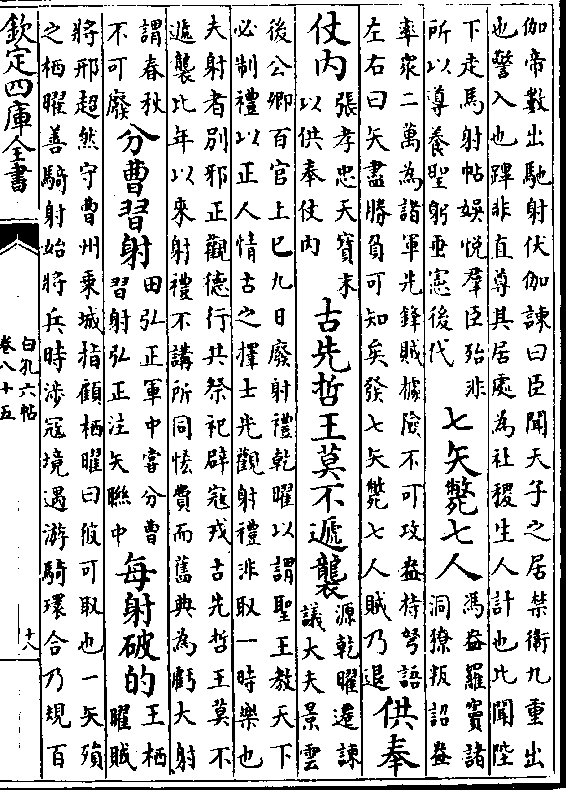 伽帝數出馳射伏伽諫曰臣聞天子之居禁衛九重出
也警入也蹕非直尊其居處為社稷生人計也比聞陛
下走馬射帖娛悅羣臣殆非
所以導養聖躬垂憲後代
七矢斃七人
馮盎羅竇諸
洞獠叛詔盎
率衆二萬為諸軍先鋒賊據險不可攻盎持弩語
左右曰矢盡勝負可知矣發七矢斃七人賊乃退
供奉
仗内
張孝忠天寶末
以供奉仗内
古先哲王莫不遞襲
源乾曜遷諫
議大夫景雲
後公卿百官上巳九日廢射禮乾曜以謂聖王教天下
必制禮以正人情古之擇士先觀射禮非取一時樂也
夫射者別邪正觀德行共祭祀辟寇戎古先哲王莫不
遞襲比年以來射禮不講所同恡費而舊典為虧大射
謂春秋
不可廢
分曹習射
田弘正軍中嘗分曹
習射弘正注矢聯中
每射破的
王栖
曜賊
將邢超然守曹州乘城指顧栖曜曰彼可取也一矢殞
之栖曜善騎射始將兵時涉寇境遇游騎環合乃規百
欽定四庫全書
白孔六帖
卷八十五
十八